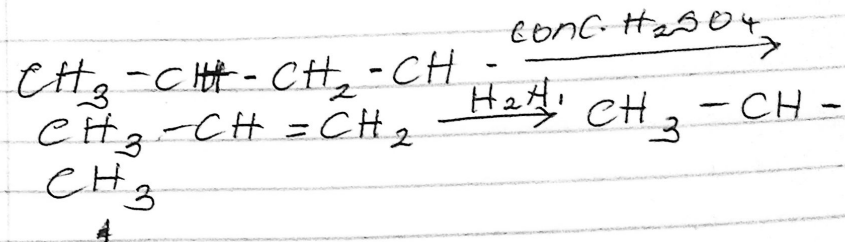 CH₃ -CH - CH₂ - CH - conc. H₂SO₄ →
CH₃ -CH = CH₂ H₂A, → CH₃ - CH -
CH₃